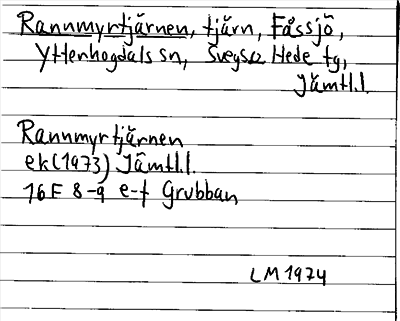 Rannmyrtjärnen, tjärn, Fåssjö,
Ytterhogdals sn, Svegs o Hede tg,
Jämtl.l.
Rannmyrtjärnen
ek (1973) Jämtl.l.
16F 8-9 e-f Grubban
LM 1974